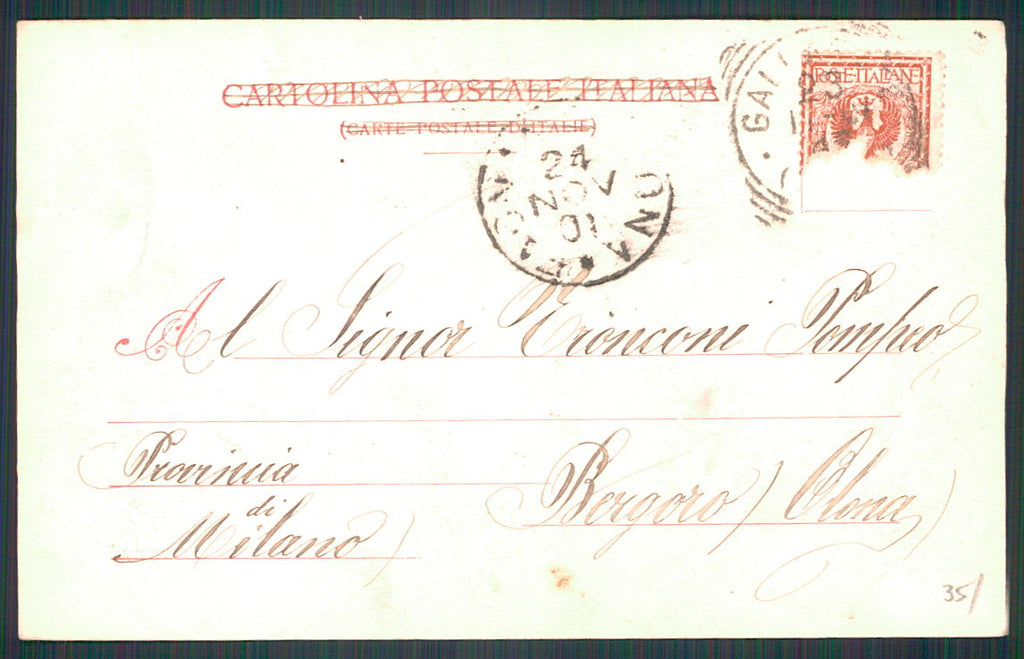 CARTOLINA POSTALE ITALIANA
(CARTE POSTALE D'ITALIE)
POSTE ITALIANE
24
NOV
01
Al Signor Tronconi Pompeo
Provincia
di
Milano)
Bergoro) Olona)
35/